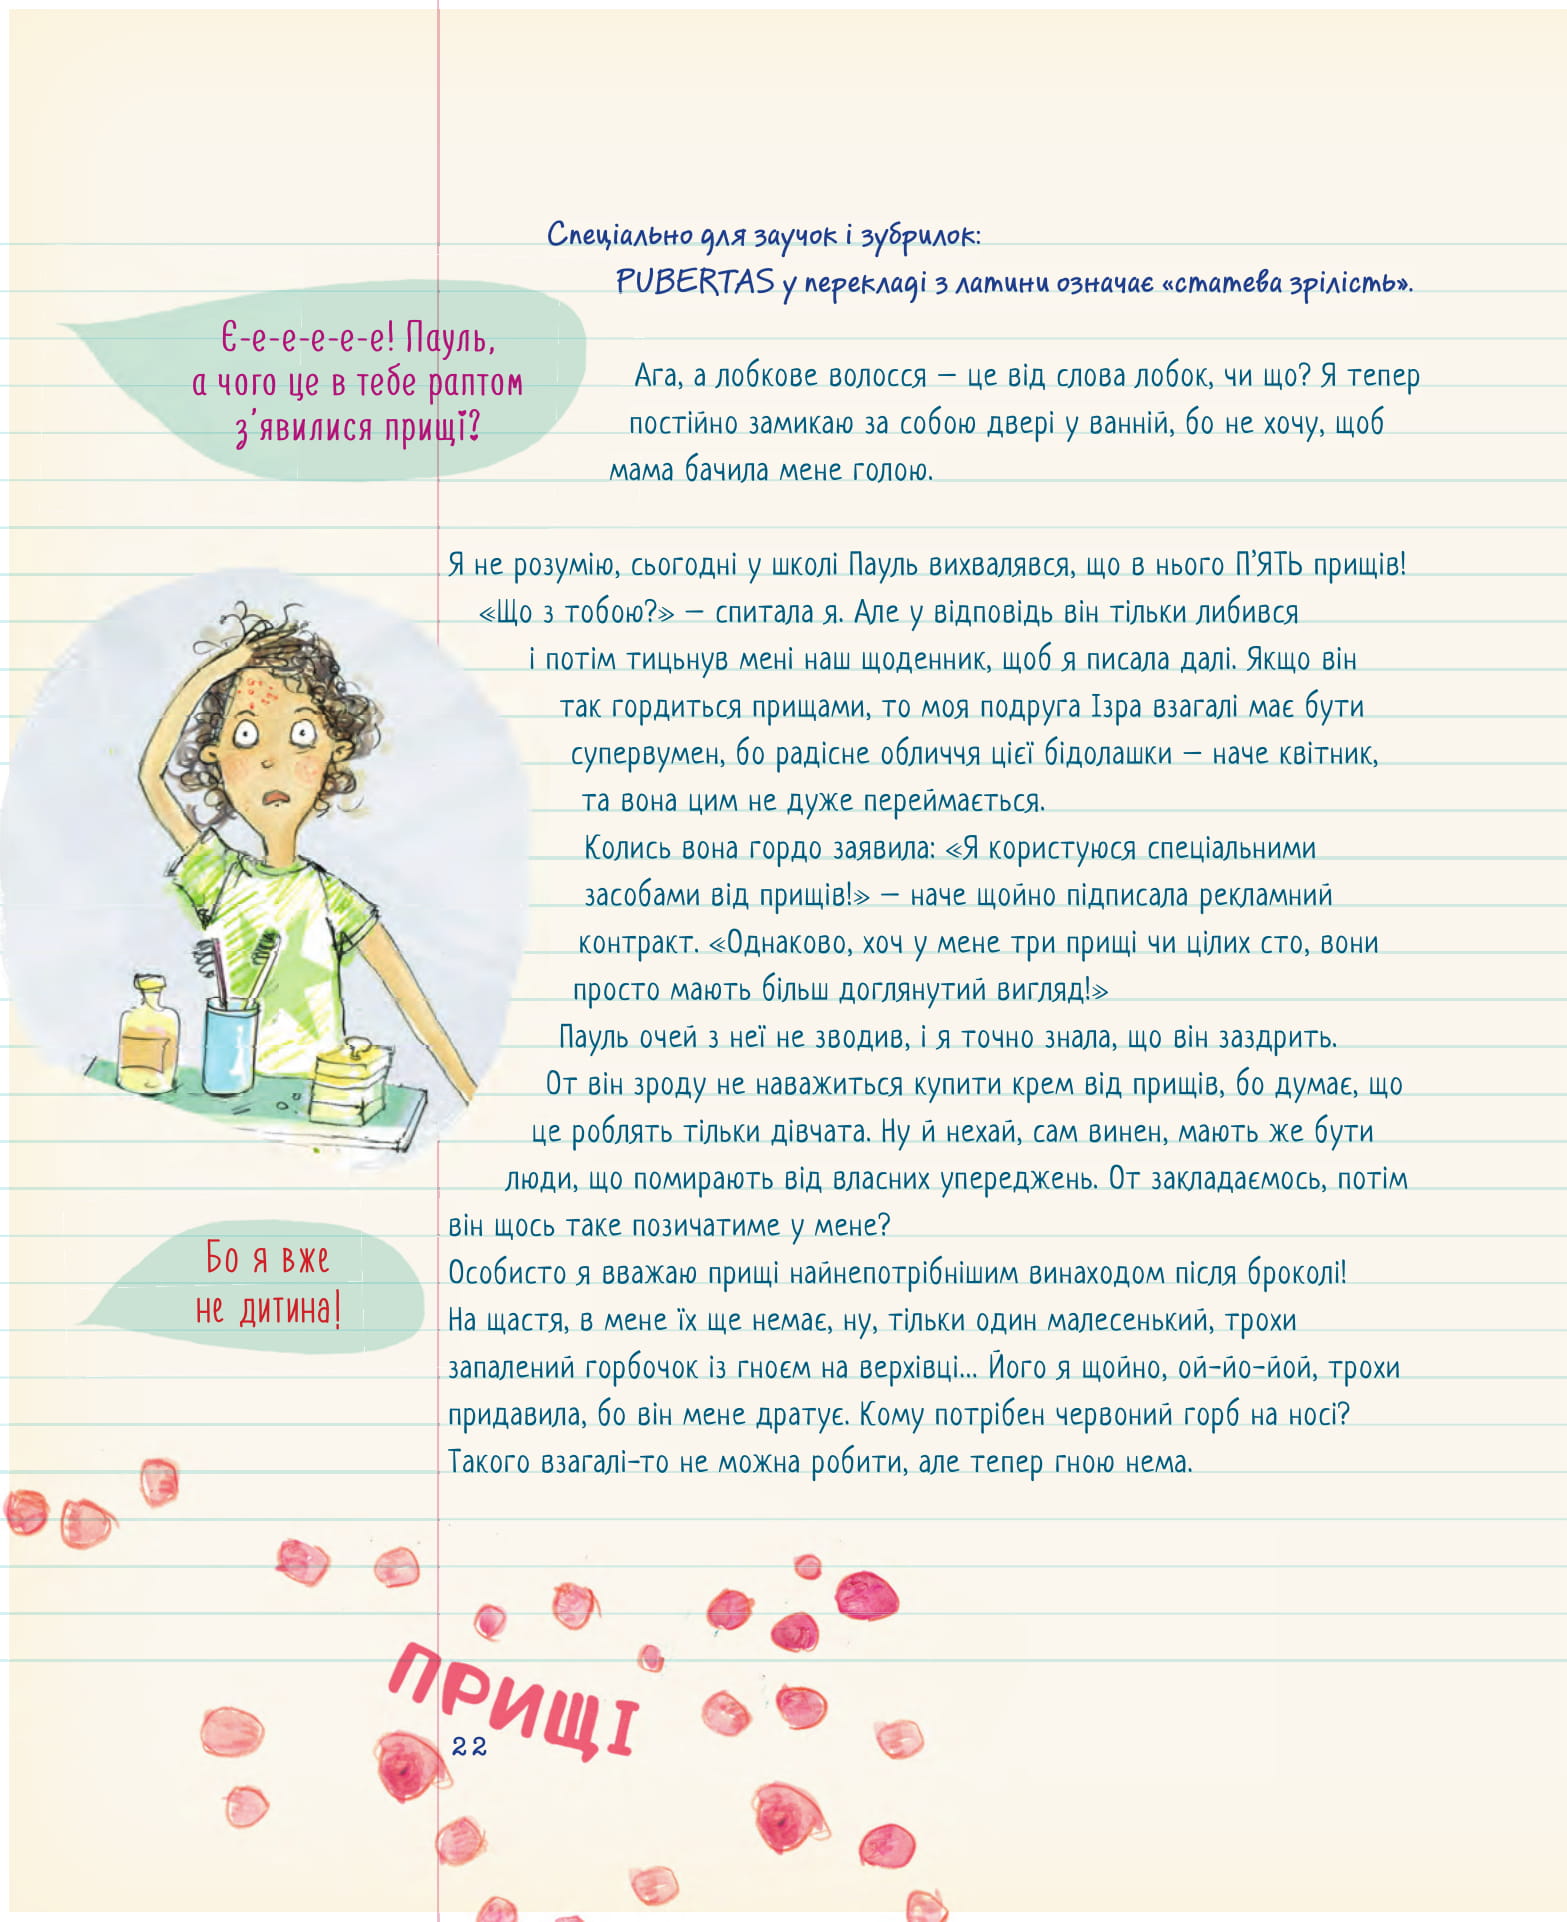 Спеціально для заучок і зубрилок:
PUBERTAS у перекладі з латини означає «статева зрілість».
Є-е-е-е-е-е! Пауль,
а чого це в тебе раптом
з’явилися прищі?
Ага, а лобкове волосся – це від слова лобок, чи що? Я тепер
постійно замикаю за собою двері у ванній, бо не хочу, щоб
мама бачила мене голою.
Я не розумію, сьогодні у школі Пауль вихвалявся, що в нього П’ЯТЬ прищів!
«Що з тобою?» – спитала я. Але у відповідь він тільки либився
і потім тицьнув мені наш щоденник, щоб я писала далі. Якщо він
так гордиться прищами, то моя подруга Ізра взагалі має бути
супервумен, бо радісне обличчя цієї бідолашки – наче квітник,
та вона цим не дуже переймається.
Колись вона гордо заявила: «Я користуюся спеціальними
засобами від прищів!» – наче щойно підписала рекламний
контракт. «Однаково, хоч у мене три прищі чи цілих сто, вони
просто мають більш доглянутий вигляд!»
Пауль очей з неї не зводив, і я точно знала, що він заздрить.
От він зроду не наважиться купити крем від прищів, бо думає, що
це роблять тільки дівчата. Ну й нехай, сам винен, мають же бути
люди, що помирають від власних упереджень. От закладаємось, потім
він щось таке позичатиме у мене?
Бо я вже
не дитина!
Особисто я вважаю прищі найнепотрібнішим винаходом після броколі!
На щастя, в мене їх ще немає, ну, тільки один малесенький, трохи
запалений горбочок із гноєм на верхівці... Його я щойно, ой-йо-йой, трохи
придавила, бо він мене дратує. Кому потрібен червоний горб на носі?
Такого взагалі-то не можна робити, але тепер гною нема.
ПРИЩІ
22